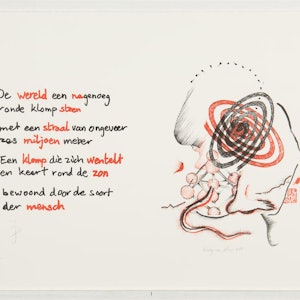 De wereld een nagenoeg
ronde klomp steen
met een straal van ongeveer
zes miljoen meter
Een klomp die zich wentelt
en keert rond de zon
bewoond door de soort
der mensch